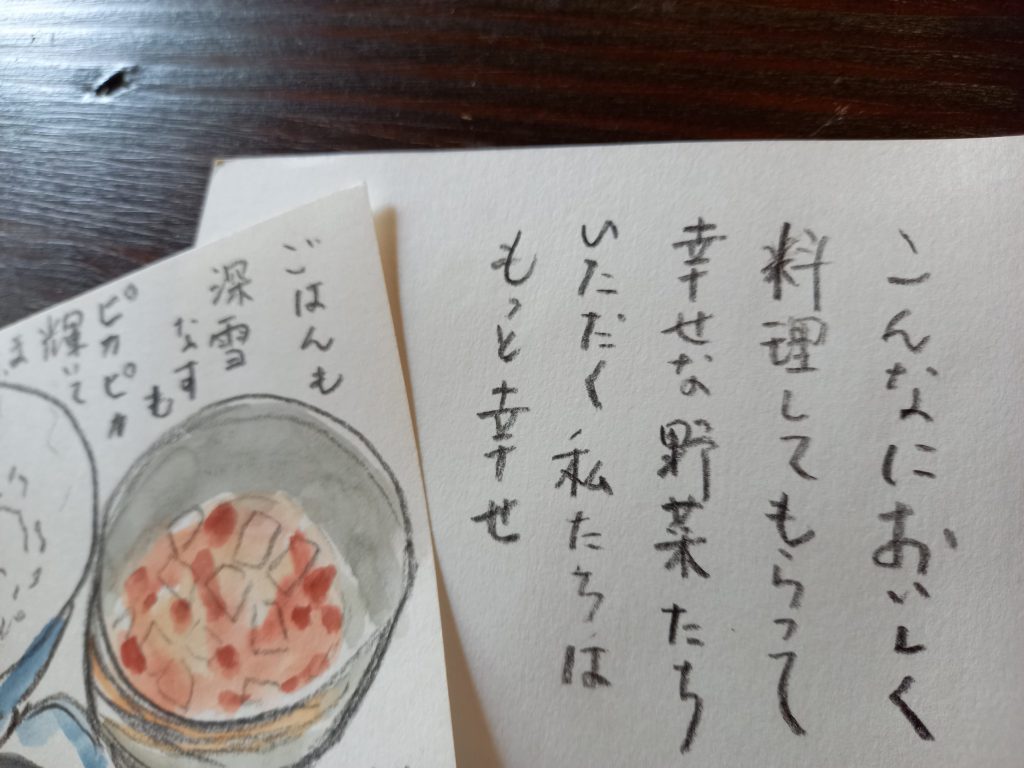 こんなにおいしく
料理してもらって
幸せな野菜たち
いただく私たちは
もっと幸せ
ごはんも
深雪
なすも
ピカピカ
輝いて